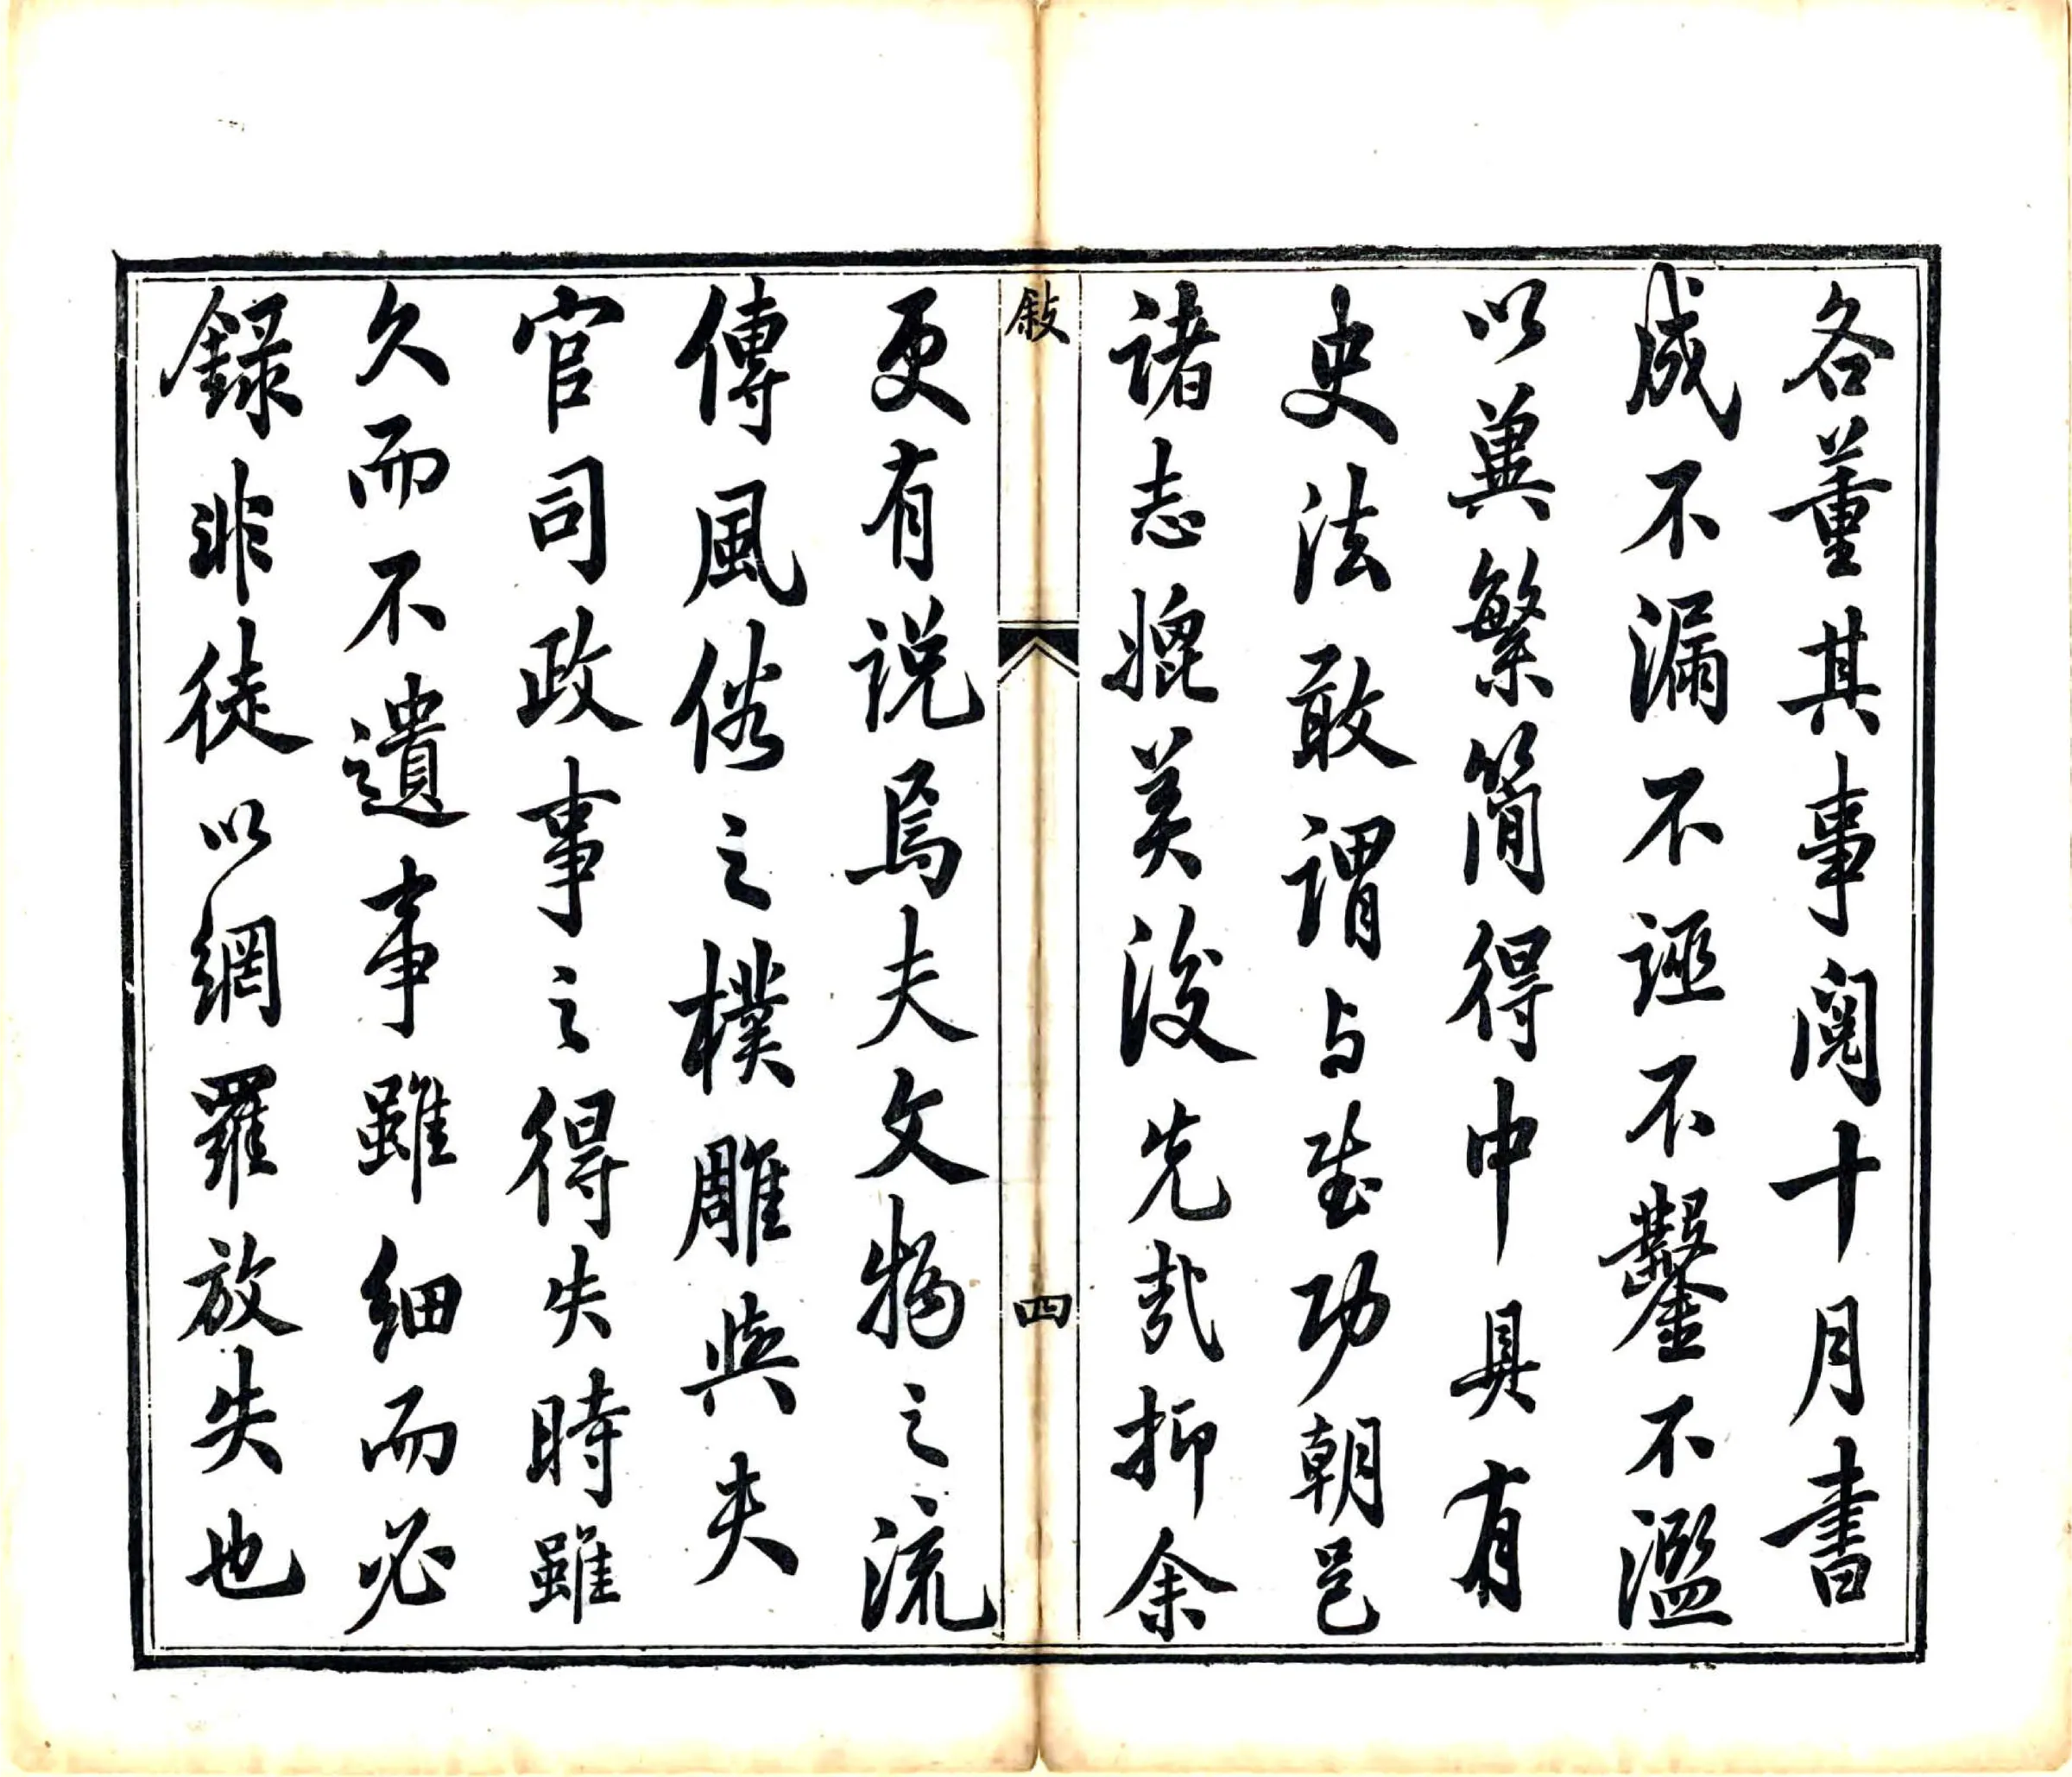 各董其事閱十月書
成不漏不誣不鑿不濫
以冀繁簡得中具有
史法敢謂与武功朝邑
諸志媲美後先哉抑余
敍
四
更有説焉夫文物之流
傳風俗之樸雕與夫
官司政事之得失時雖
久而不遺事雖細而必
録非徒以網羅放失也